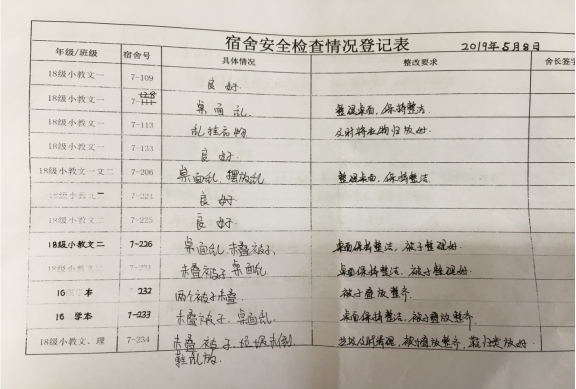 宿舍安全检查情况登记表 2019年5月8日
年级/班级 宿舍号 具体情况 整改要求 舍长签字
18级小教文一 7-109 良好.
18级小教文一 7- 桌面乱 整理桌面,保持整洁
18级小教文一 7-113 乱挂衣物 及时将衣物归放好.
18级小教文一 7-133 良好.
18级小教文一文二 7-206 桌面乱,摆放乱 整理桌面,保持整洁
18级小教文二 7-224 良好
7-225 良好.
18级小教文二 7-226 桌面乱,未叠被子. 桌面保持整洁,被子整理好.
7-231 未叠被子,桌面乱 桌面保持整洁,被子整理好.
16 本 232 两个被子未叠. 被子叠放整齐
16 学本 7-233 未叠被子,桌面乱. 桌面保持整洁,被子叠放整齐.
18级小教文、理 7-234 未叠被子,垃圾未倒, 垃圾及时清理,被子叠放整齐,鞋归类放好
鞋乱放.